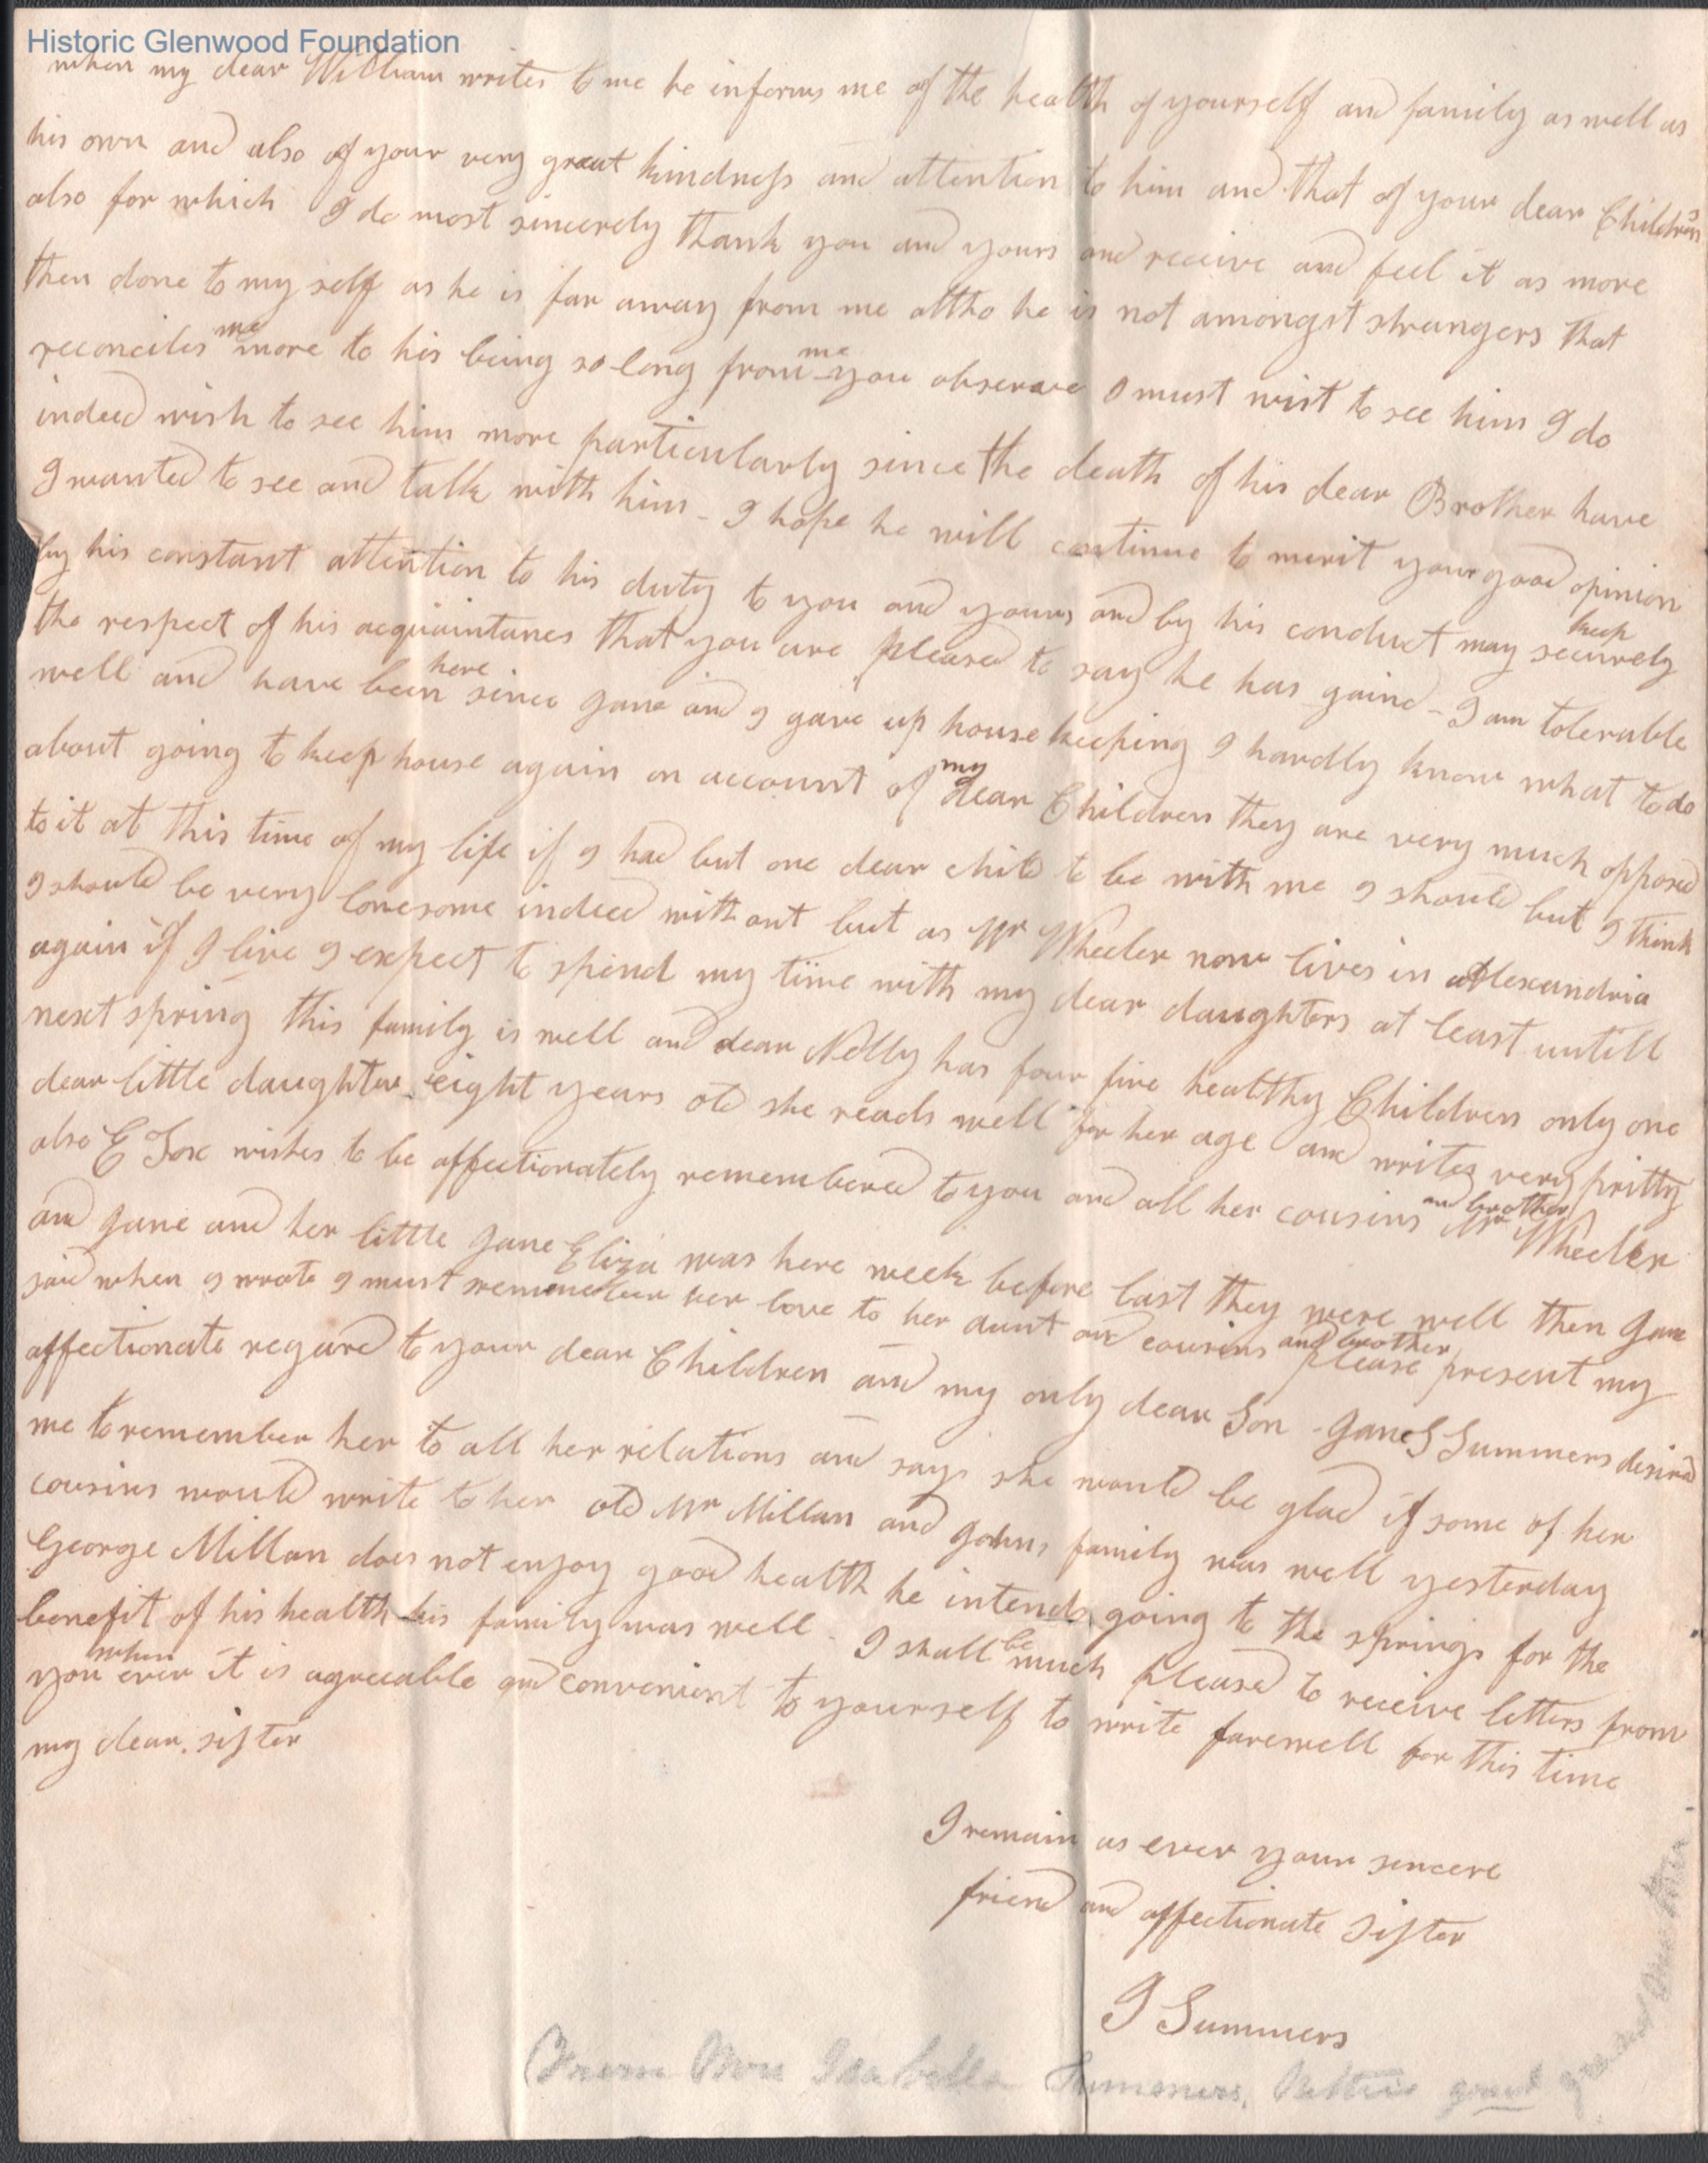 Historic Glenwood Foundation
when my dear William writes to me he informs me of the health of yourself and family as well as
his own and also of your very great kindness and attention to him and that of your dear Childrens
also for which I do most sincerely thank you and yours and receive and feel it as more
then done to my self as he is far away from me altho he is not amongst strangers that
reconciles me more to his being so long from me you observe I must wist to see him I do
indeed wish to see him more particularly since the death of his dear Brother have
I wanted to see and talk with him - I hope he will continue to merit your good opinion
by his constant attention to his duty to you and yours and by his conduct may keep securely
the respect of his acquaintances that you are pleased to say he has gaind - I am tolerable
well and have been here since Jane and I gave up house keeping I hardly know what to do
about going to keep house again on account of my dear Children they are very much opposed
to it at this time of my life if I had but one dear child to be with me I should but I think
I should be very lonesome indeed without but as Mr Wheeler now lives in Alexandria
again if I live I expect to spend my time with my dear daughters at least untill
next spring this family is well and dear Nelly has four fine healthy Children only one
dear little daughter eight years old she reads well for her age and writes very pritty
also E Fox wishes to be affectionately remembered to you and all her cousins and brother Mr Wheeler
and Jane and her little Jane Eliza was here week before last they were well then Jane
said when I wrote I must remember her love to her aunt and cousins and brother please present my
affectionate regard to your dear Children and my only dear Son - Jane S Summers desired
me to remember her to all her relations and says she would be glad if some of her
cousins would write to her old Mr Millan and Johns family was well yesterday
George Millan does not enjoy good health he intends going to the springs for the
benefit of his health his family was well - I shall be much pleased to receive letters from
you when ever it is agreeable and convenient to yourself to write farewell for this time
my dear sister
I remain as ever your sincere
friend and affectionate sister
I Summers
Isabella Summers,